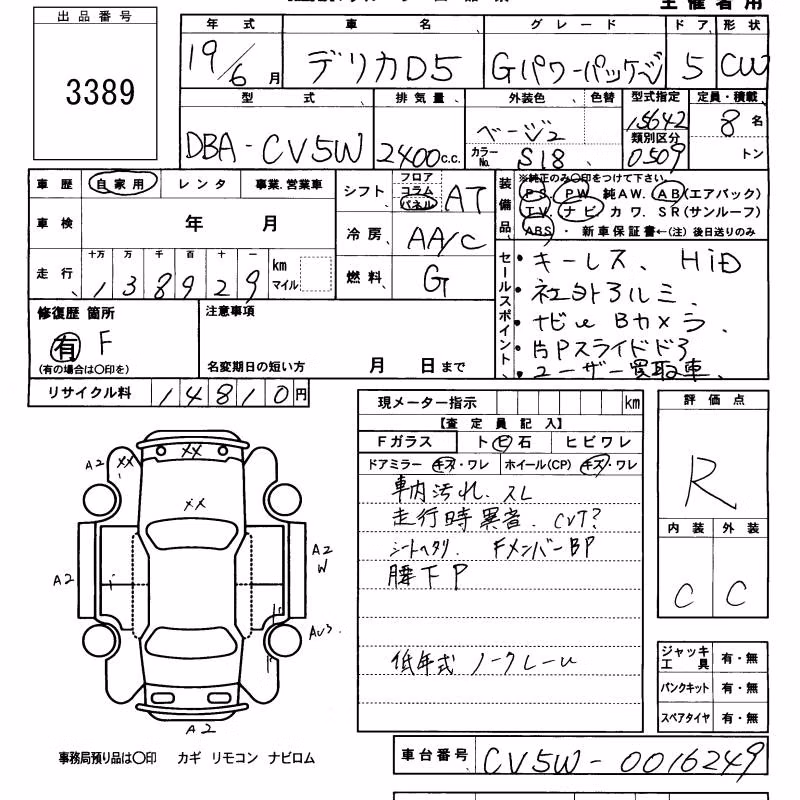 主催者用
出品番号
3389
年式 車名 グレード ドア 形状
19/6月 デリカD5 Gパワーパッケージ 5 CW
型式 排気量 外装色 色替 型式指定 定員・積載
DBA-CV5W 2400c.c. ベージュ2 15642 8名
カラーNo. S18 類別区分 0509 トン
車歴 自家用 レンタ 事業.営業車
シフト フロア コラム パネル AT
装備品 ※純正のみ〇印をつけて下さい
PS PW 純AW. AB(エアバック)
TV ナビ カワ. SR(サンルーフ)
ABS・ 新車保証書←(注)後日送りのみ
車検 年 月
冷房 AA/C
走行 十万 万 千 百 十 一 km マイル
138929
燃料 G
セールスポイント
・キーレス、HiD
・社外アルミ.
・ナビ Bカメラ.
・片Pスライドドア
・ユーザー買取車.
修復歴 箇所
有 F
(有の場合は〇印を)
注意事項
名変期日の短い方 月 日まで
リサイクル料 14810円
現メーター指示 km
【査定員記入】
Fガラス ト ビ 石 ヒビワレ
ドアミラー キズ・ワレ ホイール(CP) キズ・ワレ
車内汚れ. スレ
走行時異音. CVT?
シートヘタリ. FメンバーBP
腰下P
低年式 ノークレーム
評価点
R
内装 外装
C C
A2 XX XX
XX
A2 A2 W
AU3.
A2
ジャッキ工具 有・無
パンクキット 有・無
スペアタイヤ 有・無
事務局預り品は〇印 カギ リモコン ナビロム
車台番号 CV5W-0016249